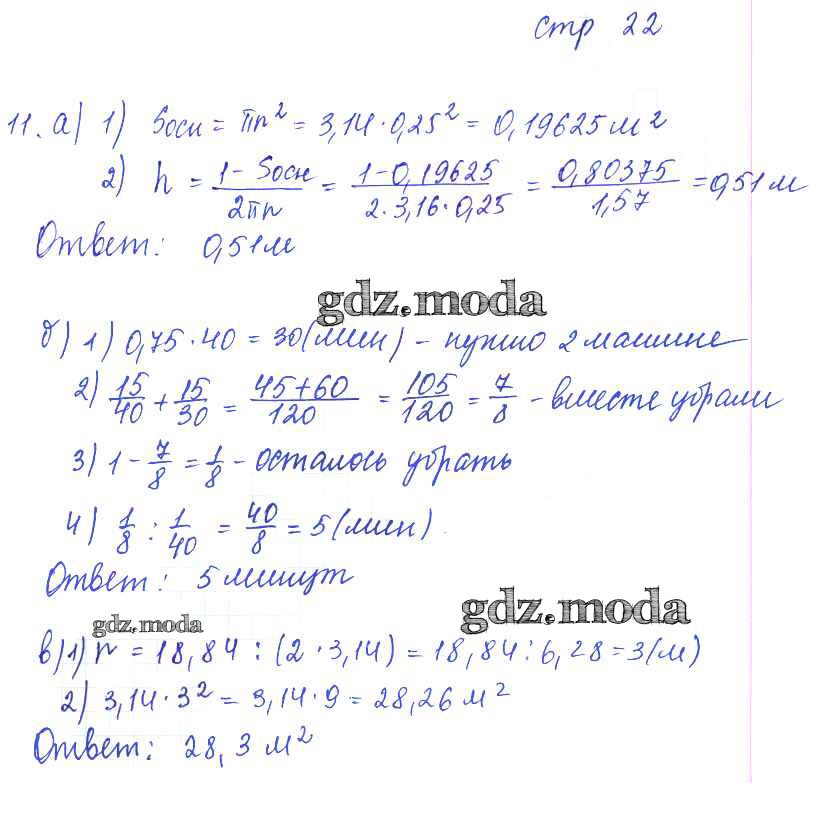 стр 22
11. а) 1) Sосн = πr² = 3,14 · 0,25² = 0,19625 м²
2) h = (1 - Sосн)/(2πr) = (1 - 0,19625)/(2 · 3,16 · 0,25) = 0,80375/1,57 = 0,51 м
Ответ: 0,51 м
gdz.moda
б) 1) 0,75 · 40 = 30 (мин) - нужно 2 машине
2) 15/40 + 15/30 = (45+60)/120 = 105/120 = 7/8 - вместе убрали
3) 1 - 7/8 = 1/8 - осталось убрать
4) 1/8 : 1/40 = 40/8 = 5 (мин)
Ответ: 5 минут
gdz.moda
gdz.moda
в) 1) r = 18,84 : (2 · 3,14) = 18,84 : 6,28 = 3 (м)
2) 3,14 · 3² = 3,14 · 9 = 28,26 м²
Ответ: 28,3 м²